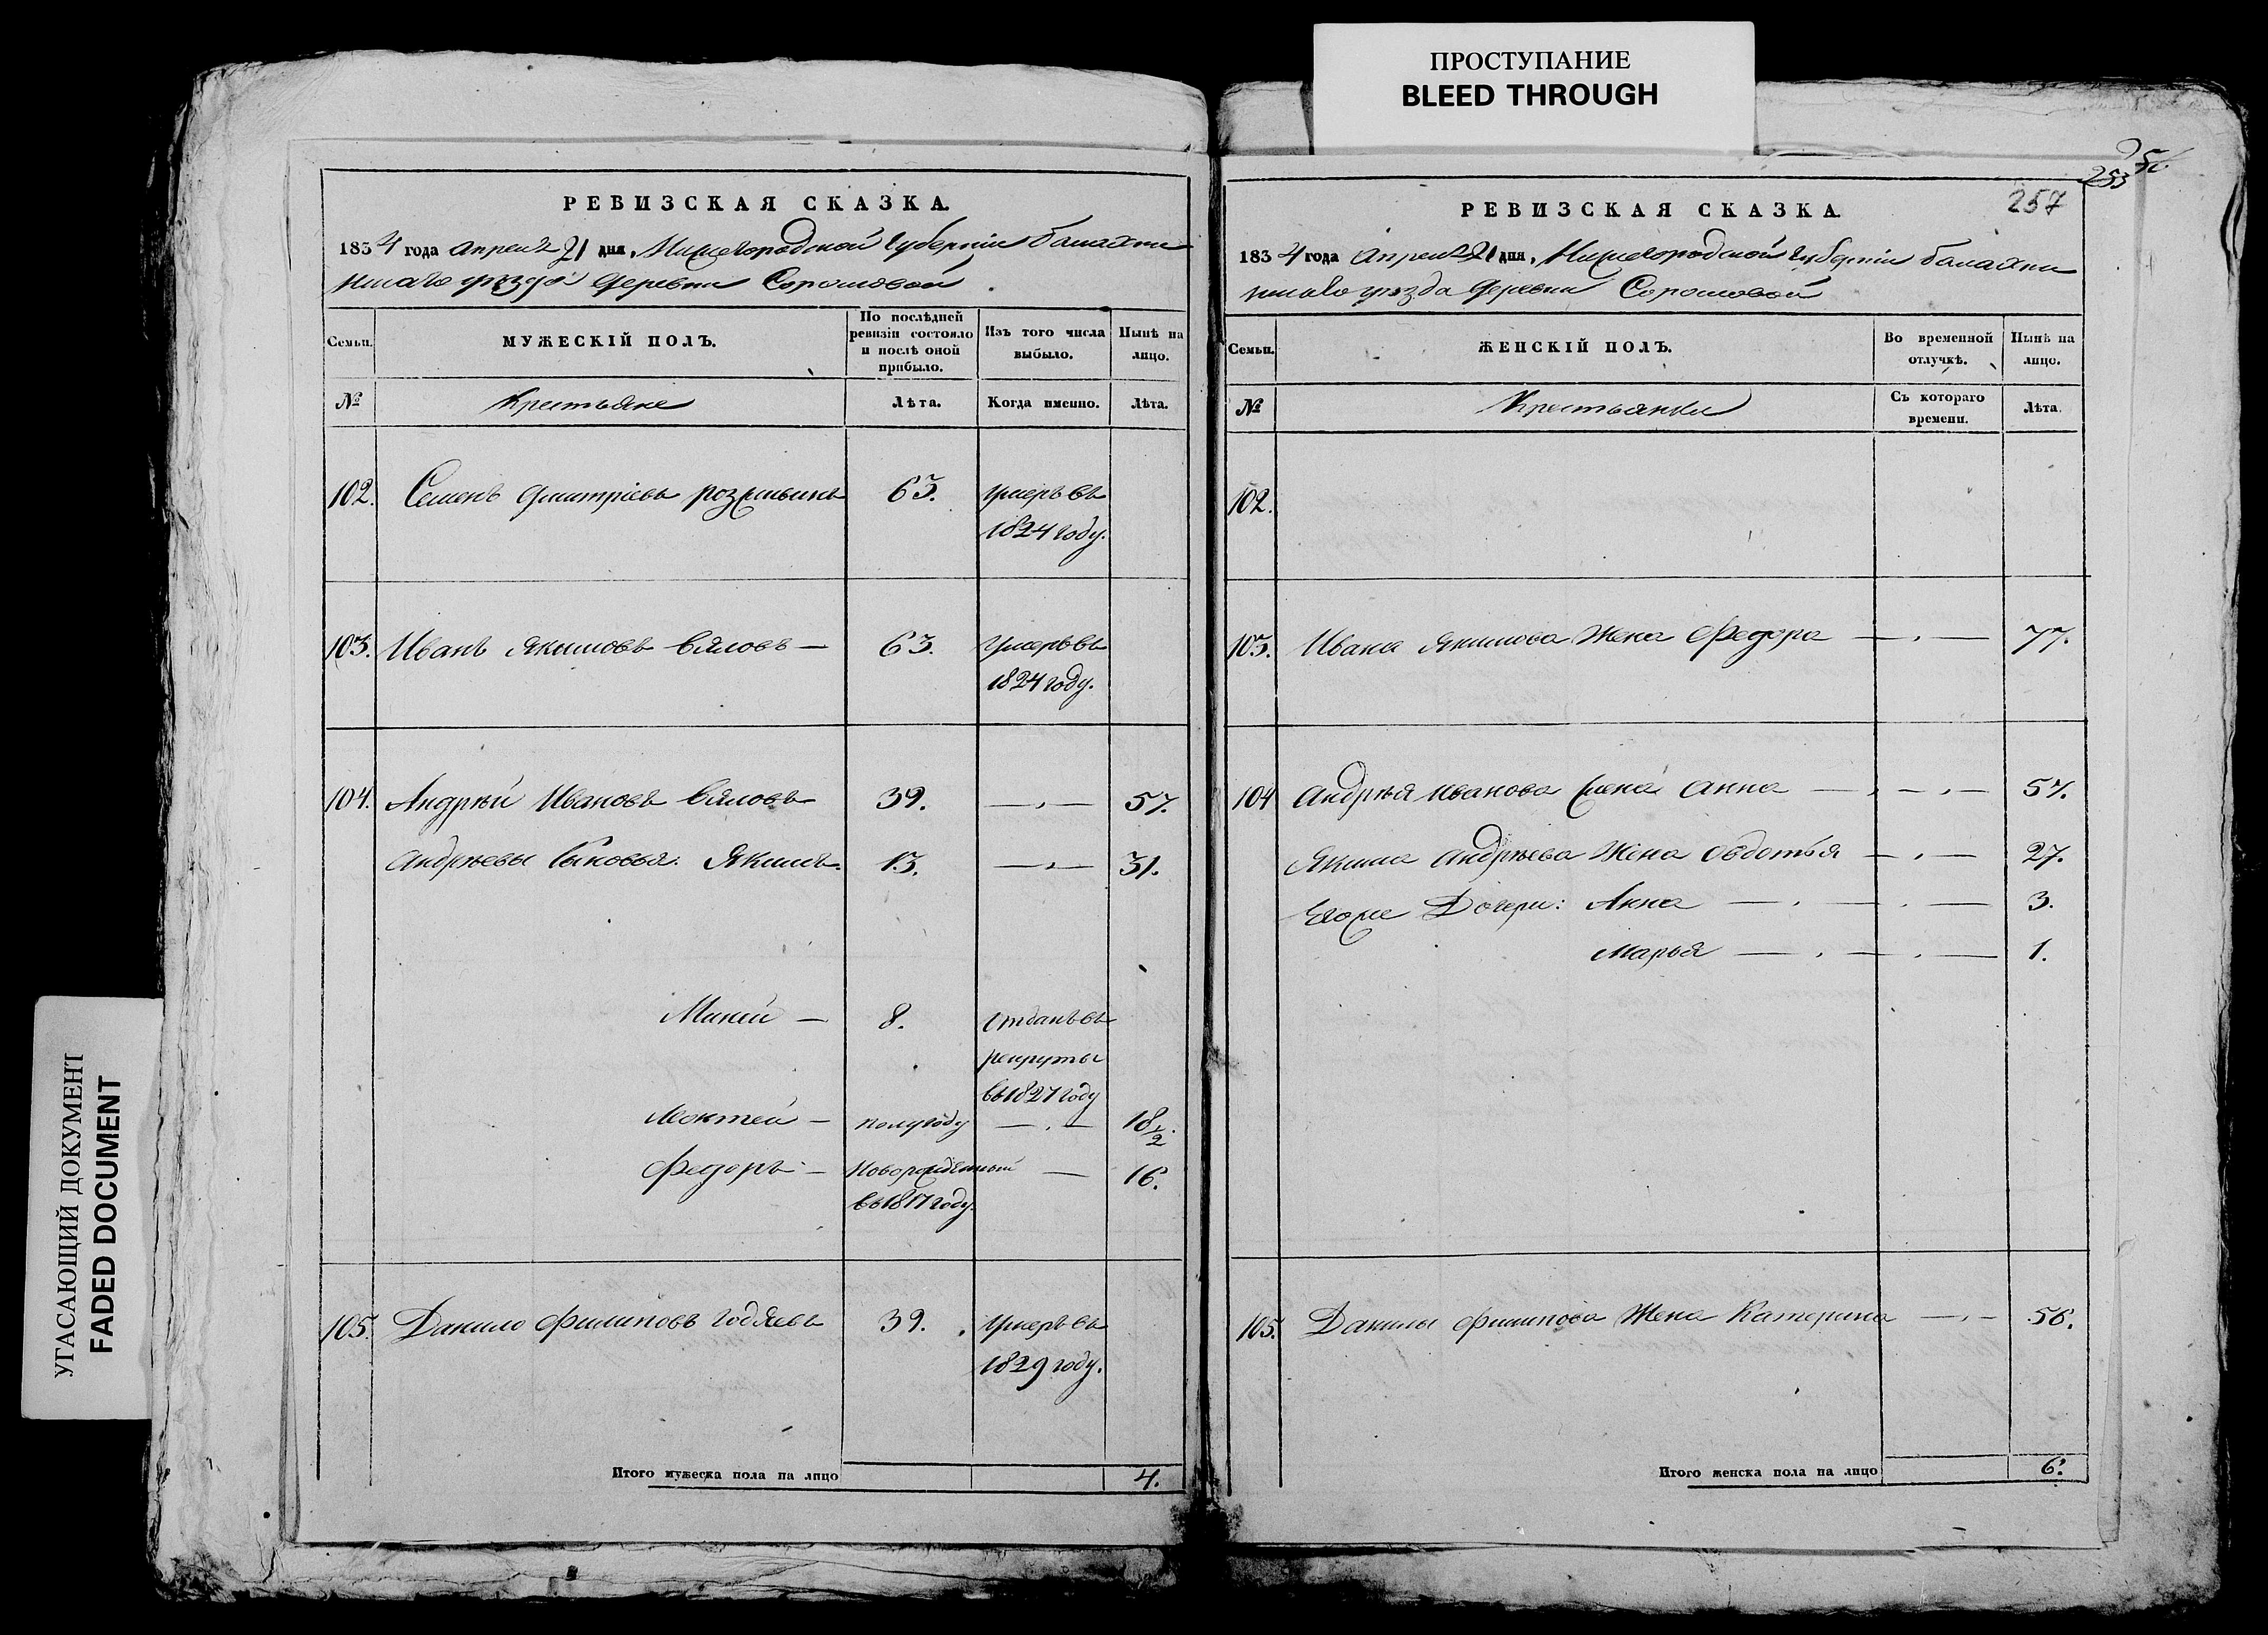 ПРОСТУПАНИЕ
BLEED THROUGH
УГАСАЮЩИЙ ДОКУМЕНТ
FADED DOCUMENT
РЕВИЗСКАЯ СКАЗКА.
1834 года апреля 21 дня, Нижегородской губернии балахни
нскаго уѣзда деревни
Семьи.
МУЖЕСКІЙ ПОЛЪ.
По послѣдней ревизіи состояло и послѣ оной прибыло.
Изъ того числа выбыло.
Нынѣ на лицо.
№
Крестьяне
Лѣта.
Когда именно.
Лѣта.
102. Семенъ дмитріевъ 63. умеръ въ
1824 году.
103. Иванъ Якимовъ Вяловъ — 63. умеръ въ
1824 году.
104. Андрѣй Ивановъ Вяловъ 39. — „ — 57.
Андрѣевы сыновья: Якимъ. 13. — „ — 31.
Микей — 8. отданъ въ
рекруты
въ 1827 году
полугоду — „ — 18 1/2.
Федоръ — Новорожденный — 16.
въ 1817 году.
105. Данило Филиповъ 39. умеръ въ
1829 году.
Итого мужеска пола на лицо 4.
253
257
РЕВИЗСКАЯ СКАЗКА.
1834 года апреля 21 дня, Нижегородской губерніи балахни
нскаго уѣзда деревни
Семьи.
ЖЕНСКІЙ ПОЛЪ.
Во временной отлучкѣ.
Нынѣ на лицо.
№
Крестьянки
Съ котораго времени.
Лѣта.
102.
103. Ивана Якимова жена Федора — „ — 77.
104 Андрѣя Иванова жена Анна — „ — „ — 57.
Якима Андрѣева жена Овдотья — „ — 27.
Егоже Дочери: Анна — „ — „ — 3.
Марья — „ — „ — 1.
105. Данилы Филипова жена Катерина — „ — 56.
Итого женска пола на лицо 6.